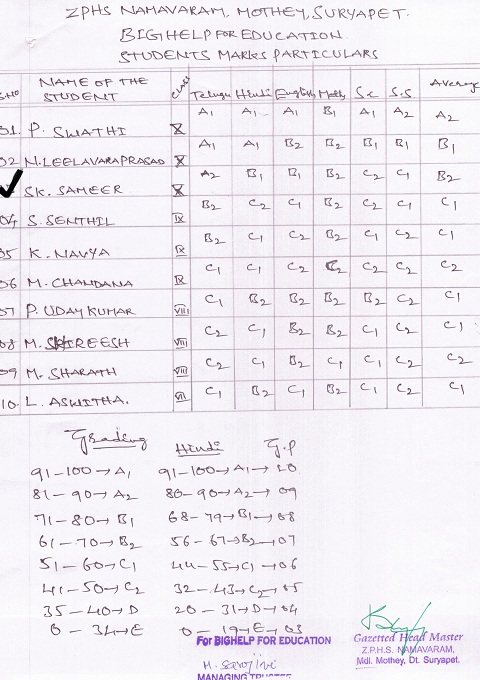 ZPHS NAMAVARAM, MOTHEY, SURYAPET.
BIGHELP FOR EDUCATION
STUDENTS MARKS PARTICULARS
SNo NAME OF THE STUDENT Class Telugu Hindi English Maths Sc S.S Average
01. P. SWATHI X A1 A1 A1 B1 A1 A2 A2
02 N. LEELAVARAPRASAD X A1 A1 B2 B2 B1 B1 B1
SK. SAMEER X A2 B1 B1 B2 C2 C1 B2
04 S. SENTHIL IX B2 C2 C1 B2 C2 C1 C1
05 K. NAVYA IX B2 C1 C2 B2 C1 C2 C1
06 M. CHANDANA IX C1 C1 C2 C2 C2 C2 C2
07 P. UDAY KUMAR VIII C1 B2 B2 B2 B2 C2 C1
08 M. SHIREESH VIII C2 C1 B2 B2 C1 C2 C1
09 M. SHARATH VIII C2 C1 B2 C1 C1 C2 C2
10. L. ASWITHA. VII C1 B2 C1 B2 C1 C2 C1
Grading Hindi G.P
91-100→A1 91-100→A1→10
81-90→A2 80-90→A2→09
71-80→B1 68-79→B1→08
61-70→B2 56-67→B2→07
51-60→C1 44-55→C1→06
41-50→C2 32-43→C2→05
35-40→D 20-31→D→04
0-34→E 0-19→E→03
For BIGHELP FOR EDUCATION
M. Sarojini
MANAGING TRUSTEE
Gazetted Head Master
Z.P.H.S. NAMAVARAM,
Mdl. Mothey, Dt. Suryapet.